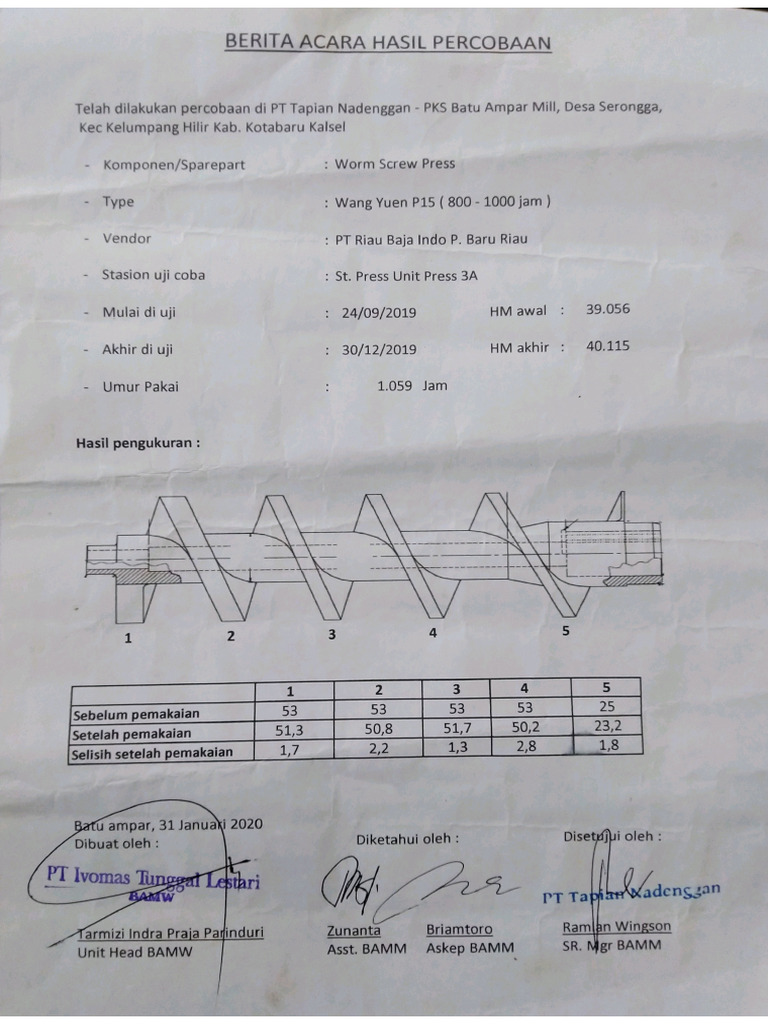 BERITA ACARA HASIL PERCOBAAN
Telah dilakukan percobaan di PT Tapian Nadenggan - PKS Batu Ampar Mill, Desa Serongga,
Kec Kelumpang Hilir Kab. Kotabaru Kalsel
- Komponen/Sparepart : Worm Screw Press
- Type : Wang Yuen P15 ( 800 - 1000 jam )
- Vendor : PT Riau Baja Indo P. Baru Riau
- Stasion uji coba : St. Press Unit Press 3A
- Mulai di uji : 24/09/2019 HM awal : 39.056
- Akhir di uji : 30/12/2019 HM akhir : 40.115
- Umur Pakai : 1.059 Jam
Hasil pengukuran :
1 2 3 4 5
1 2 3 4 5
Sebelum pemakaian 53 53 53 53 25
Setelah pemakaian 51,3 50,8 51,7 50,2 23,2
Selisih setelah pemakaian 1,7 2,2 1,3 2,8 1,8
Batu ampar, 31 Januari 2020
Dibuat oleh : Diketahui oleh : Disetujui oleh :
PT Ivomas Tunggal Lestari
BAMW
PT Tapian Nadenggan
Tarmizi Indra Praja Parinduri Zunanta Briamtoro Ramlan Wingson
Unit Head BAMW Asst. BAMM Askep BAMM SR. Mgr BAMM